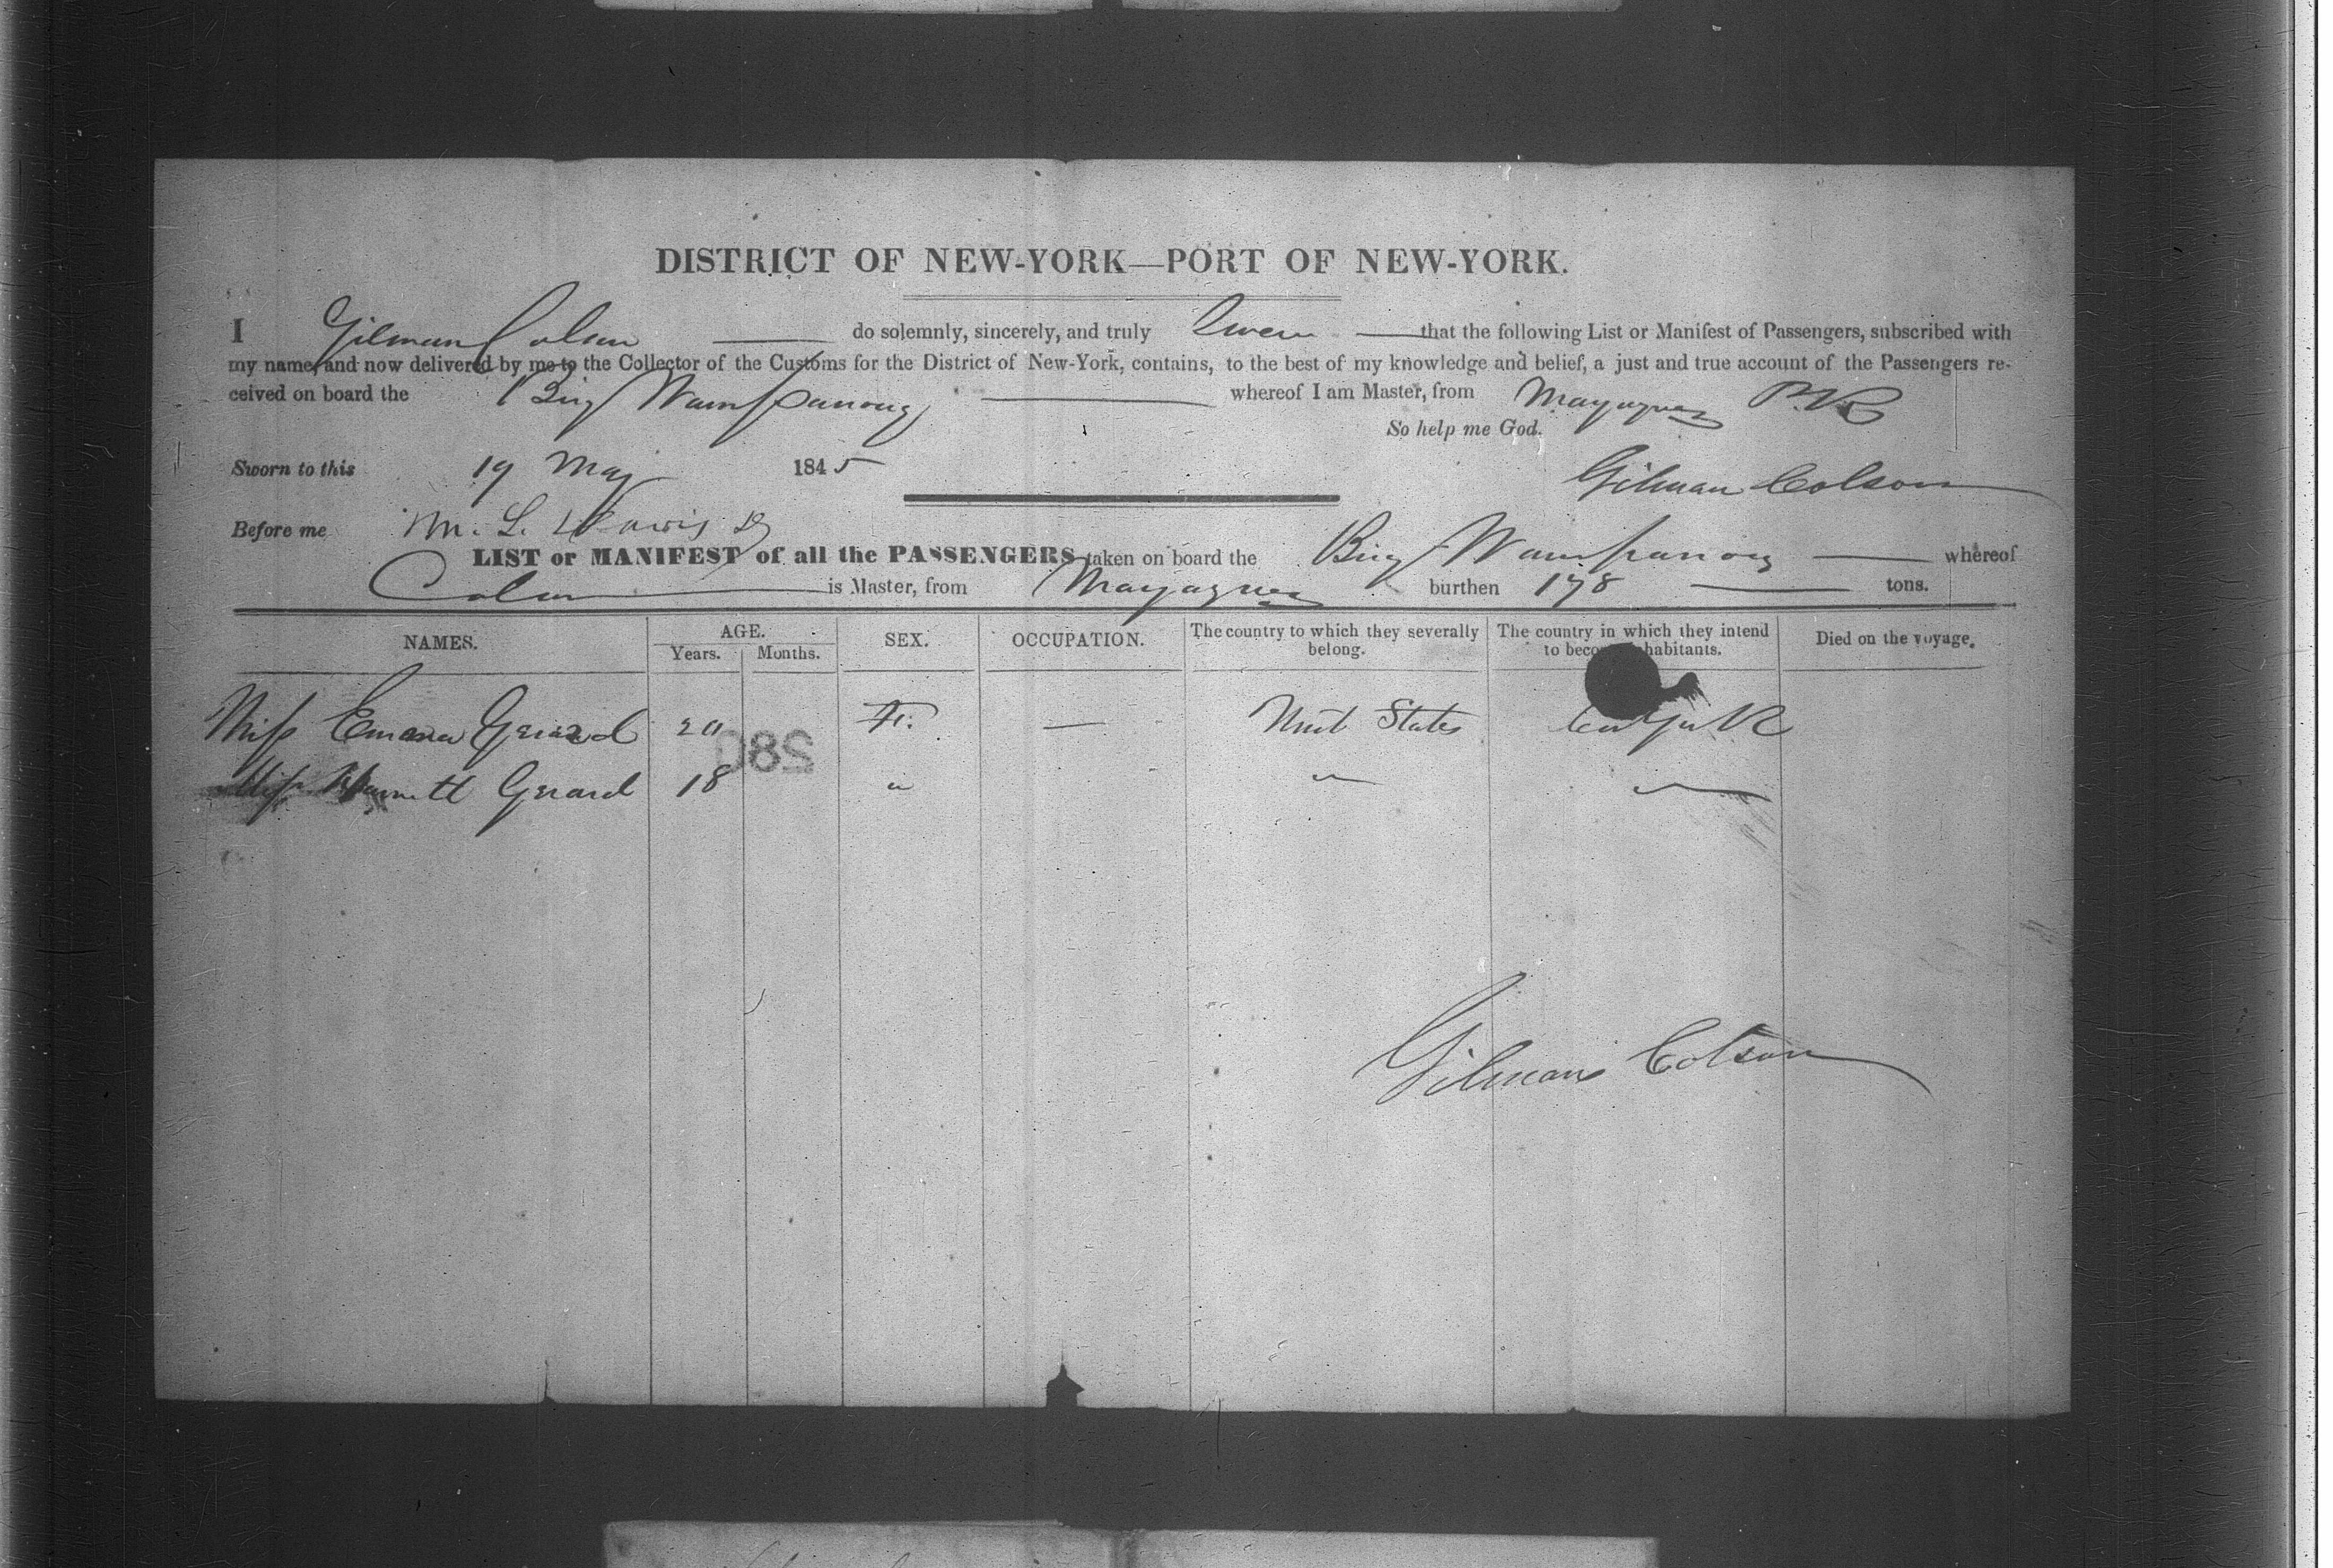 DISTRICT OF NEW-YORK—PORT OF NEW-YORK.
I Gilman Colson do solemnly, sincerely, and truly Swear that the following List or Manifest of Passengers, subscribed with
my name, and now delivered by me to the Collector of the Customs for the District of New-York, contains, to the best of my knowledge and belief, a just and true account of the Passengers re-
ceived on board the Brig Wampanoag whereof I am Master, from Mayaguez P.R
So help me God.
Sworn to this 19 May 1845
Gilman Colson
Before me M. L.
LIST or MANIFEST of all the PASSENGERS taken on board the Brig Wampanoag whereof
Colson is Master, from Mayaguez burthen 178 tons.
NAMES. AGE. Years. Months. SEX. OCCUPATION. The country to which they severally belong. The country in which they intend to become inhabitants. Died on the voyage.
Miss Emma Gerard 20 F. — Unit States New York
Miss Gerard 18 "
280
Gilman Colson